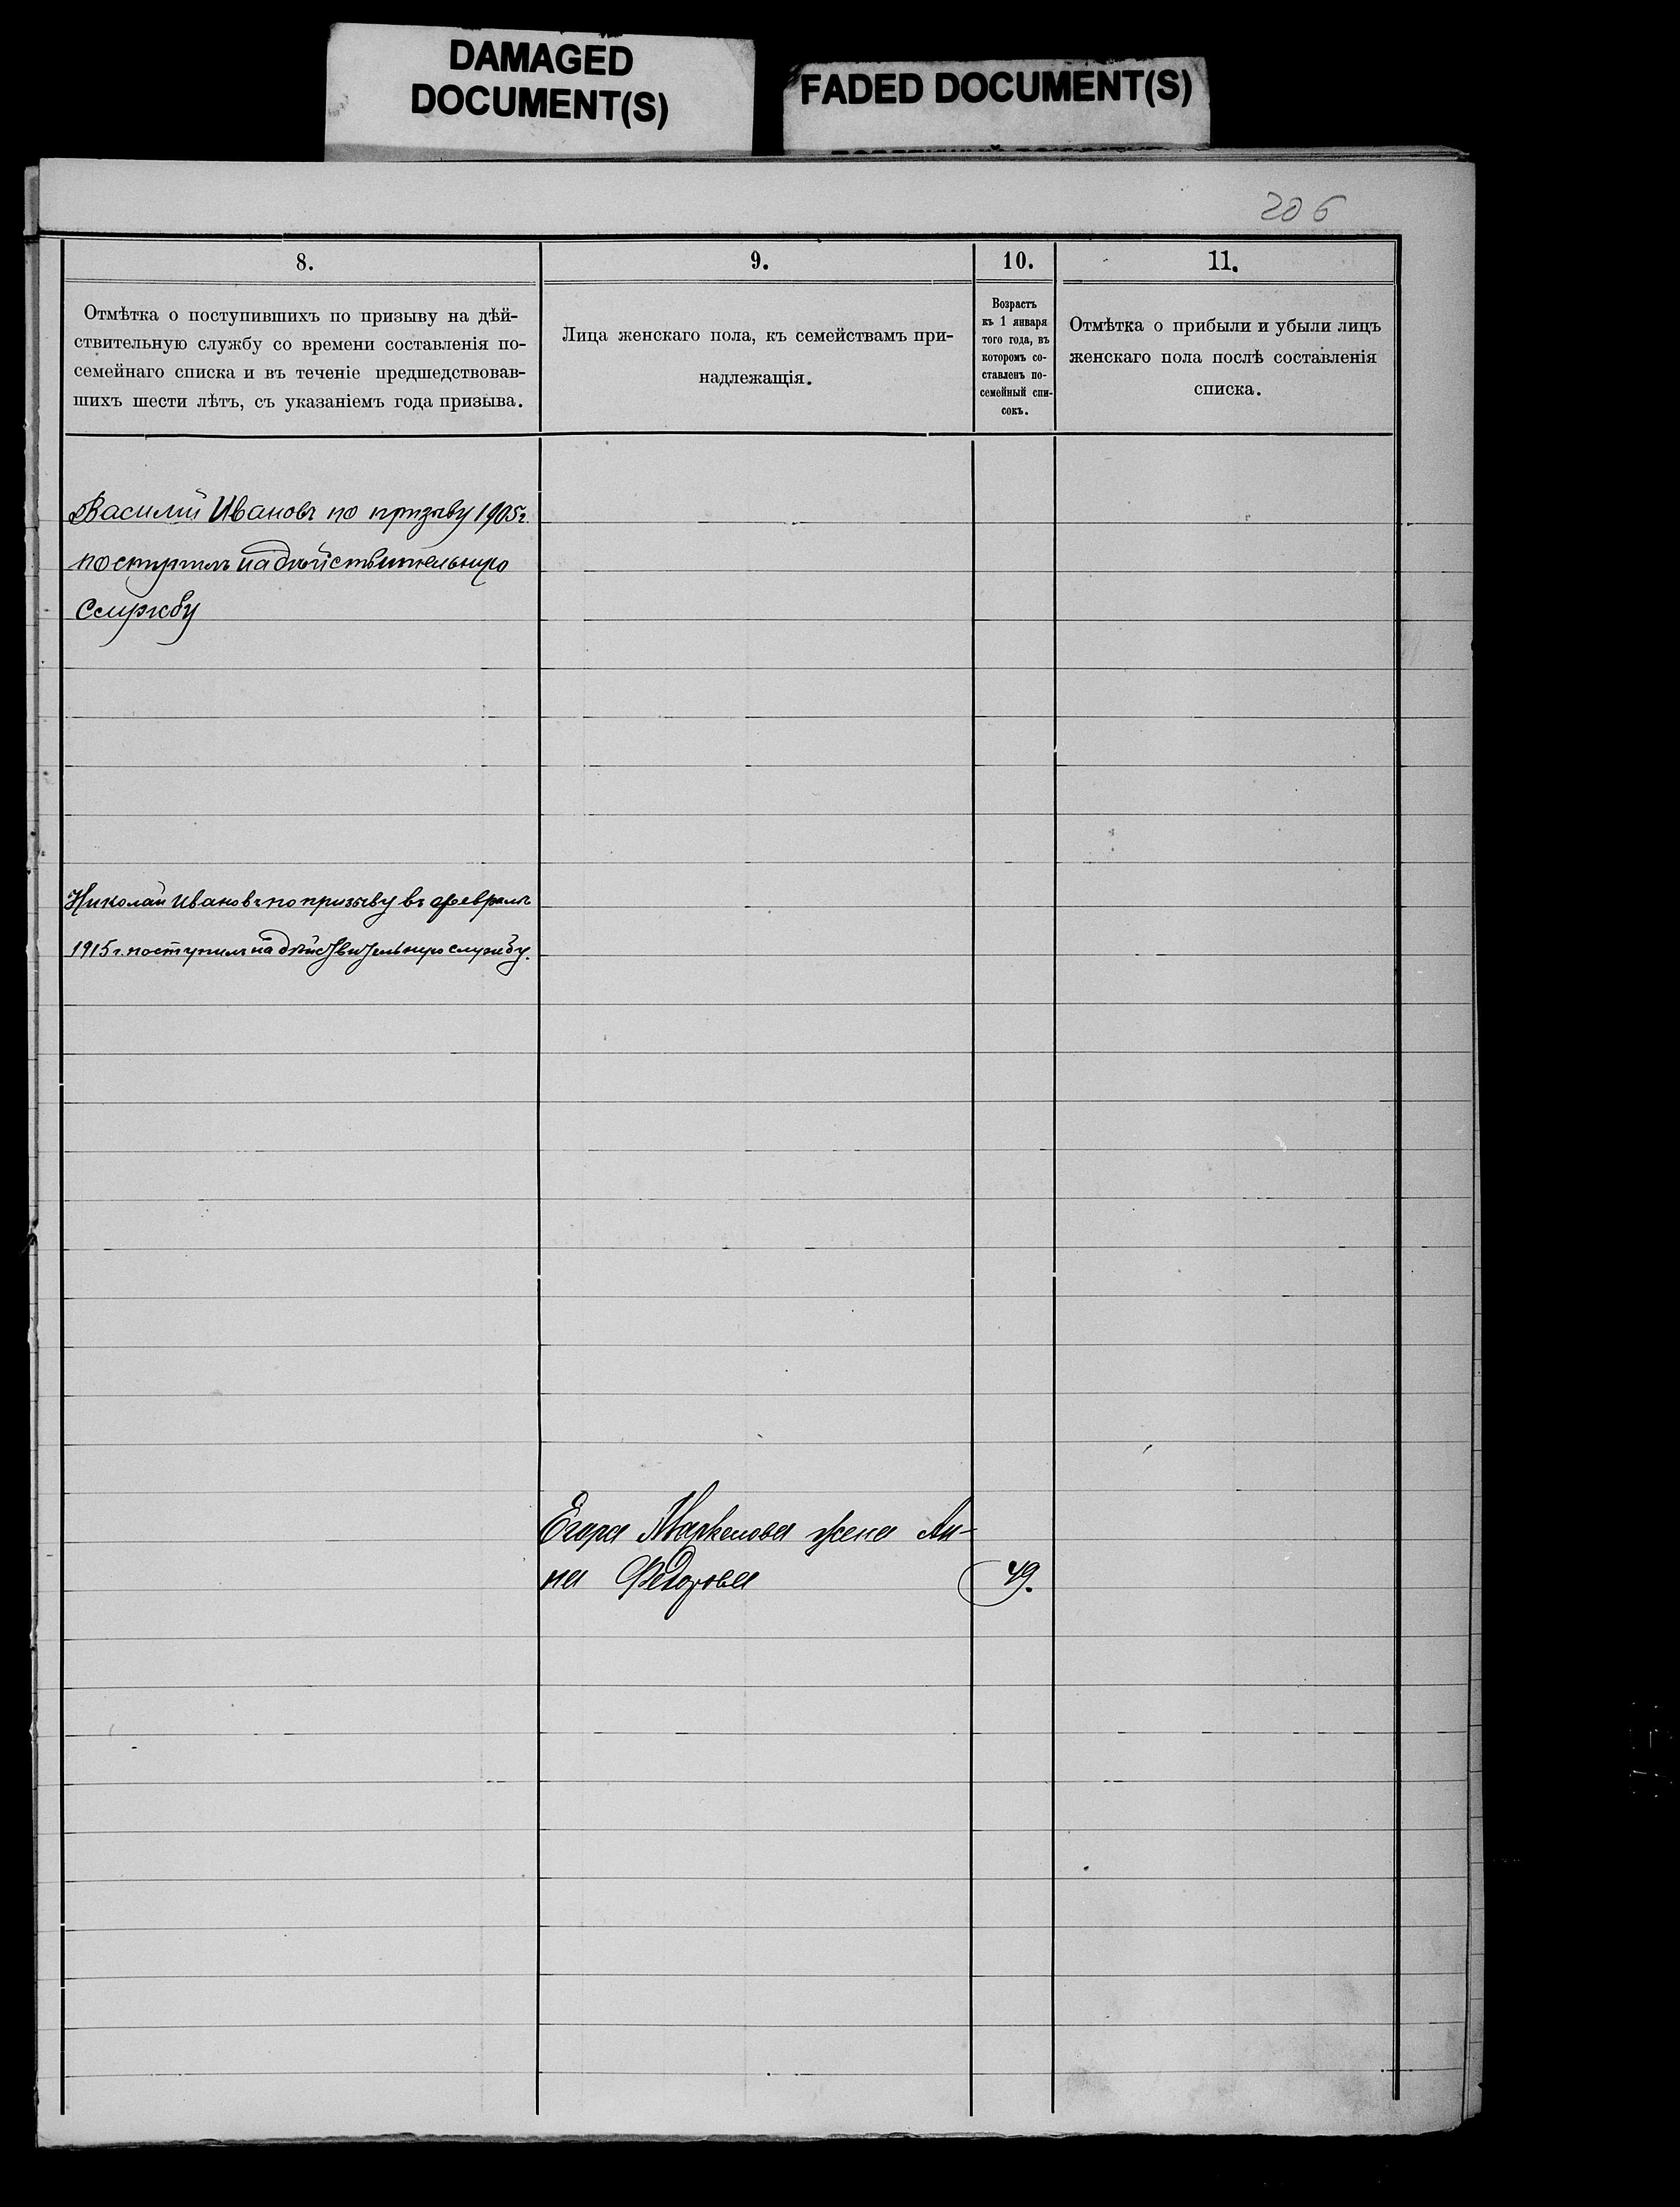 DAMAGED
DOCUMENT(S)
FADED DOCUMENT(S)
206
8.
Отмѣтка о поступившихъ по призыву на дѣй-
ствительную службу со времени составленія по-
семейнаго списка и въ теченіе предшедствовав-
шихъ шести лѣтъ, съ указаніемъ года призыва.
9.
Лица женскаго пола, къ семействамъ при-
надлежащія.
10.
Возрастъ
къ 1 января
того года, въ
которомъ со-
ставленъ по-
семейный спи-
сокъ.
11.
Отмѣтка о прибыли и убыли лицъ
женскаго пола послѣ составленія
списка.
Василій Ивановъ по призыву 1905г.
поступилъ на дѣйствительную
Службу
Николай Ивановъ по призыву въ февралѣ
1915 г. поступилъ на дѣйствительную службу.
Егора Маркелова жена Ан-
на Федорова 49.